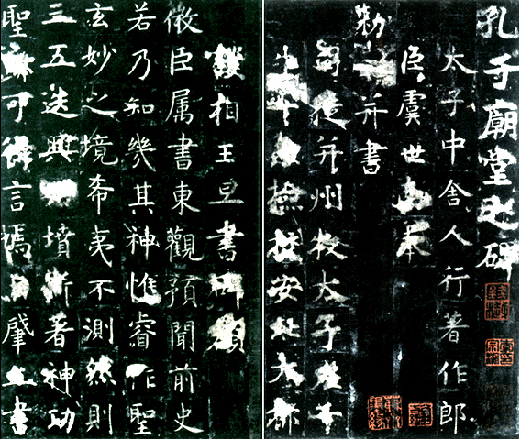 孔子廟堂之碑
太子中舍人行著作郎
臣虞世
勅 并書
司徒并州牧太子左千
牛 檢校安北大都
護相王旦書碑額
微臣属書東觀預聞前史
若乃知幾其神惟睿作聖
玄妙之境希夷不測然則
三五迭興 墳斯著神功
聖 可得言焉 肇 書